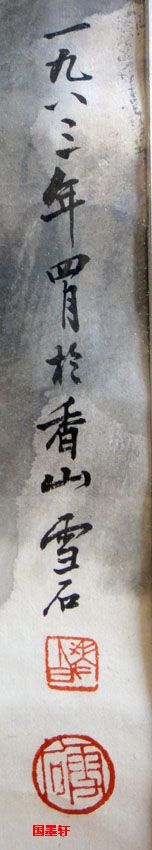 一九八三年四月於香山雪石
国墨轩